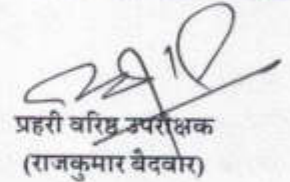 प्रहरी वरिष्ठ उपरीक्षक
(राजकुमार बैदवार)